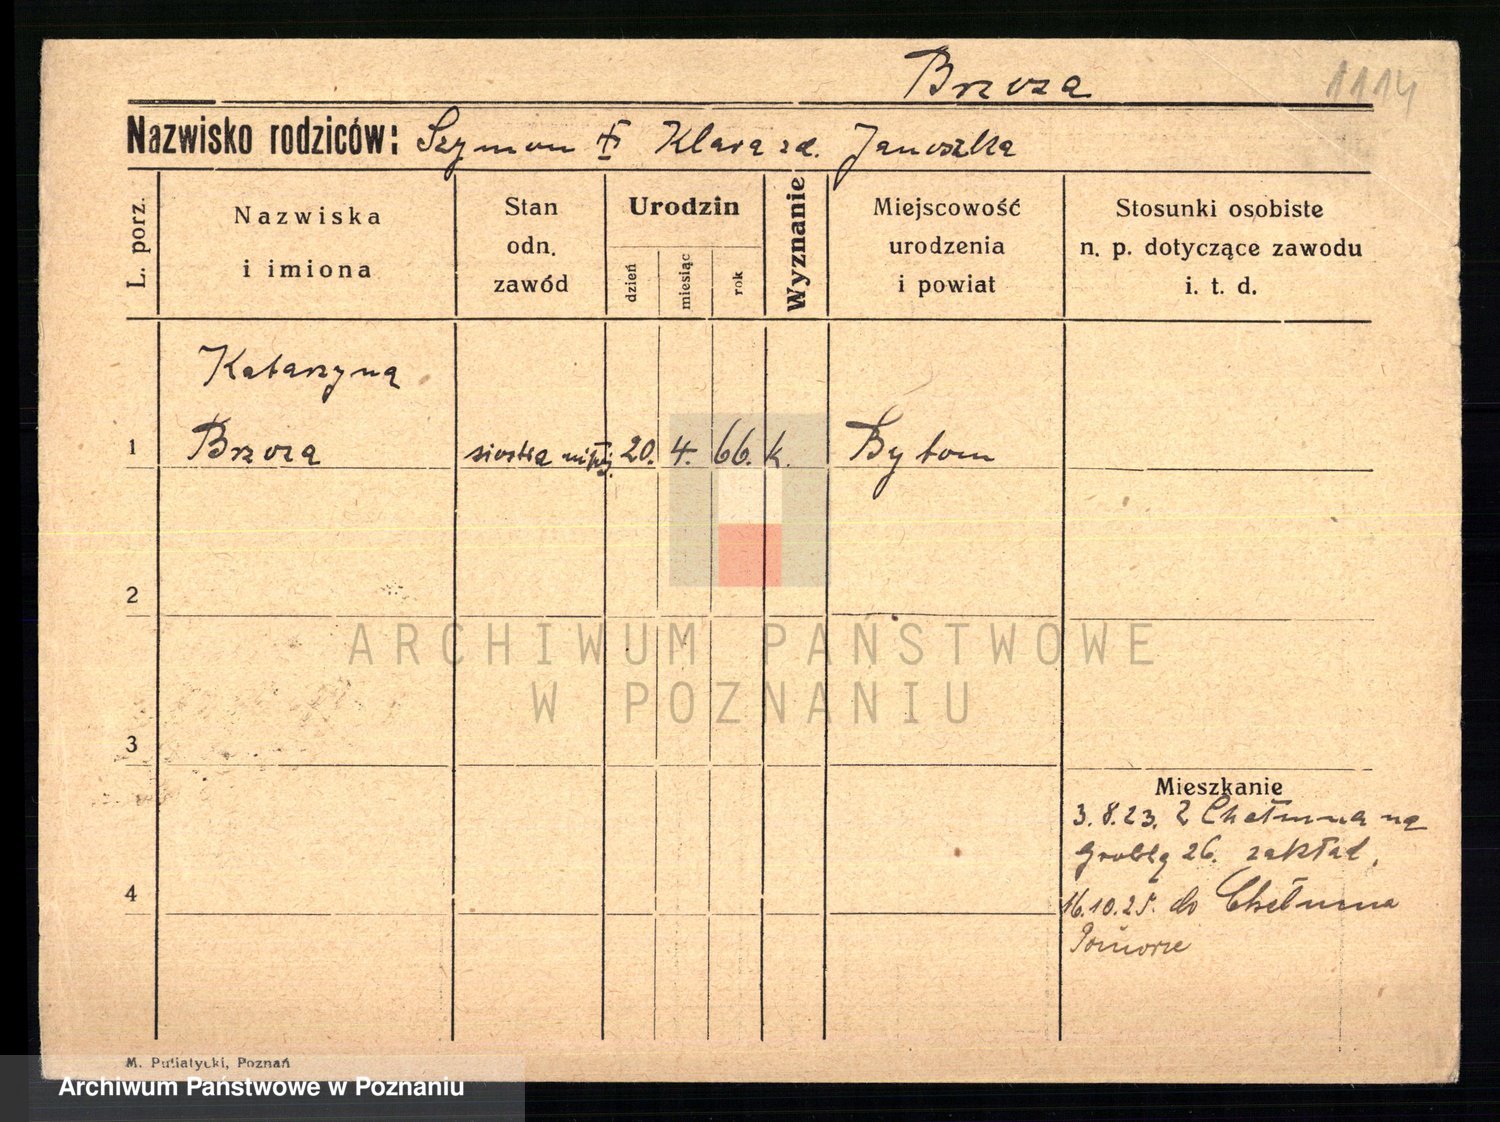 Brzoza 1114
Nazwisko rodziców: Szymon Klara zd. Janoszka
L. porz.
Nazwiska
i imiona
Stan
odn.
zawód
Urodzin
dzień
miesiąc
rok
Wyznanie
Miejscowość
urodzenia
i powiat
Stosunki osobiste
n. p. dotyczące zawodu
i. t. d.
Katarzyna
1 Brzoza siostra 20. 4. 66. k. Bytom
2
ARCHIWUM PAŃSTWOWE
W POZNANIU
3
Mieszkanie
3.8.23. Z Chełmna na
Groblę 26. zakład.
4
16.10.25. do Chełmna
Pomorze
M. Putiatycki, Poznań
Archiwum Państwowe w Poznaniu